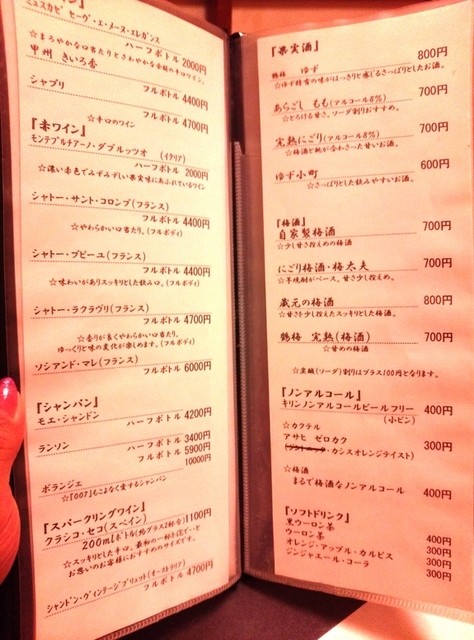 ミュスカビ セーヴ・エ・メーヌ・エレガンス
ハーフボトル 2000円
☆まろやかな口当たりとさわやかな余韻の辛口ワイン。
甲州 きいろ香
フルボトル 4400円
シャブリ
フルボトル 4700円
☆辛口のワイン
『赤ワイン』
モンテプルチアーノ・ダブルッツオ (イタリア)
ハーフボトル 2000円
☆濃い赤色でみずみずしい果実味にあふれているワイン
シャトー・サント・コロンブ(フランス)
フルボトル 4400円
☆やわらかい口当たり。(フルボディ)
シャトー・プピーユ(フランス)
フルボトル 4400円
☆味わいがありスッキリとした飲み口。(フルボディ)
シャトー・ラクラヴリ(フランス)
フルボトル 4700円
☆香りが長くやわらかい口当たり。
ゆっくりと味の変化が楽しめます。(フルボディ)
ソシアンド・マレ(フランス)
フルボトル 6000円
『シャンパン』
モエ・シャンドン
ハーフボトル 4200円
ランソン
ハーフボトル 3400円
フルボトル 5900円
ボランジェ
10000円
☆『007』もこよなく愛するシャンパン
『スパークリングワイン』
クラシコ・セコ(スペイン)
200mlボトル(約グラス2杯分)1100円
☆スッキリとした辛口。最初の一杯を泡で…と
お思いのお客様におすすめのサイズです。
シャンドン・ヴィンテージブリュット(オーストラリア)
フルボトル 4700円
『果実酒』
鶴梅 ゆず
800円
☆ゆず特有の味がはっきりと感じるさっぱりとしたお酒。
あらごし もも(アルコール8%)
700円
☆とろける甘さ。ソーダ割りおすすめ。
完熟にごり(アルコール8%)
700円
☆梅酒と桃が合わさった甘いお酒。
ゆず小町
600円
☆さっぱりとした飲みやすいお酒。
『梅酒』
自家製梅酒
700円
☆少し甘さ控えめの梅酒
にごり梅酒・梅太夫
700円
☆芋焼酎がベース。甘さ少し控えめ。
蔵元の梅酒
800円
☆甘さを少し控えたスッキリとした梅酒。
鶴梅 完熟(梅酒)
700円
☆甘めの梅酒
☆炭酸(ソーダ)割りはプラス100円となります。
『ノンアルコール』
キリンノンアルコールビール フリー 400円
(小ビン)
☆カクテル
アサヒ ゼロカク
300円
・カシスオレンジテイスト)
☆梅酒
まるで梅酒なノンアルコール
400円
『ソフトドリンク』
黒ウーロン茶 400円
ウーロン茶 300円
オレンジ・アップル・カルピス 300円
ジンジャエール・コーラ 300円